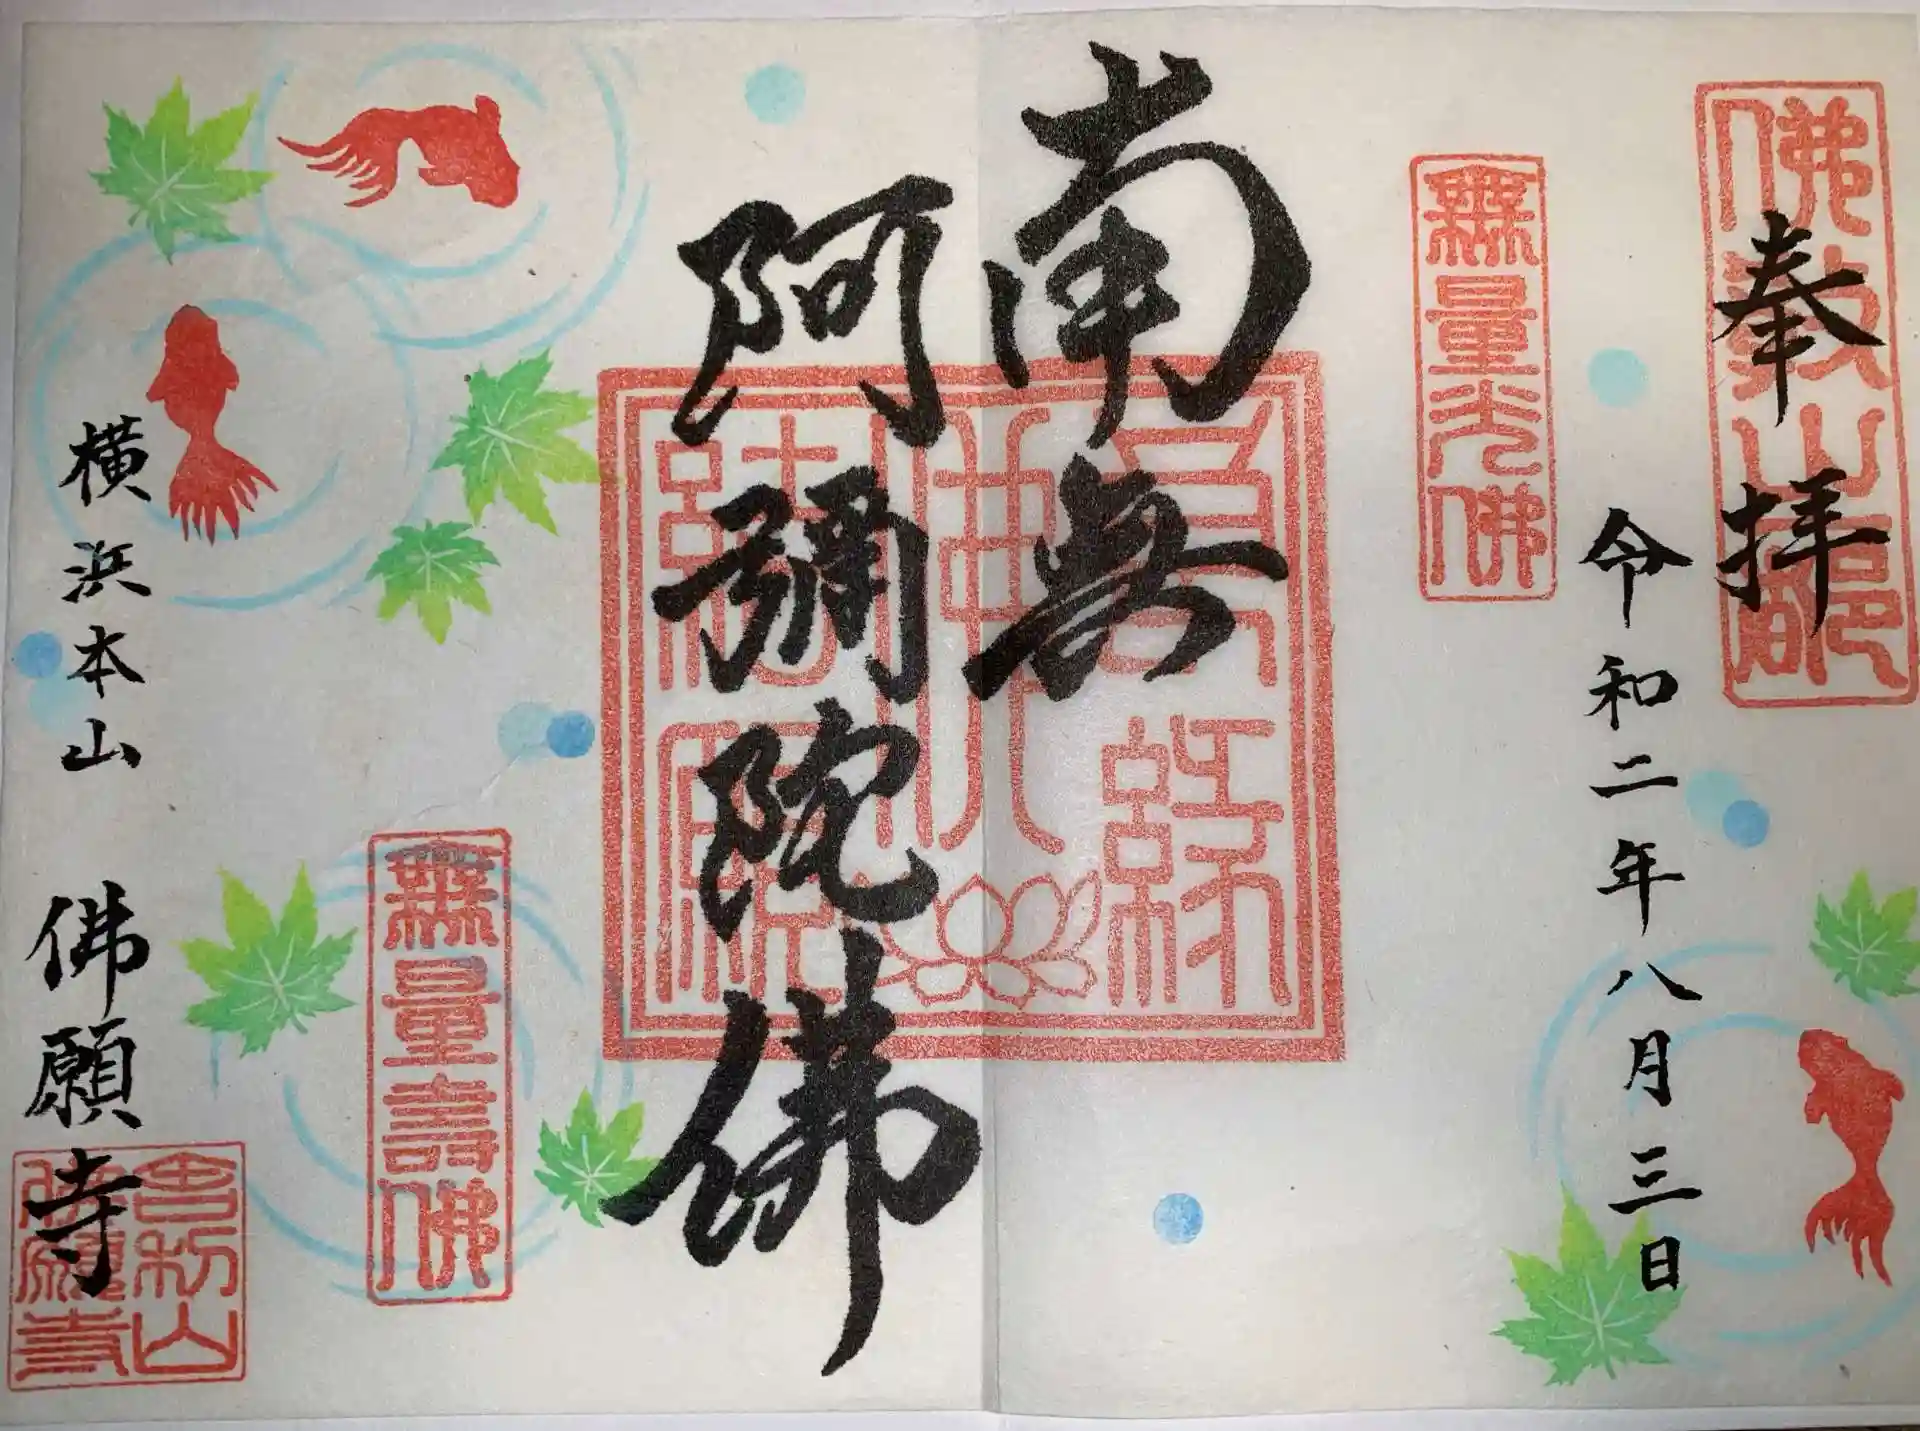 奉拝
令和二年八月三日
無量光佛
南無
阿彌陀佛
無量壽佛
横浜本山 佛願寺